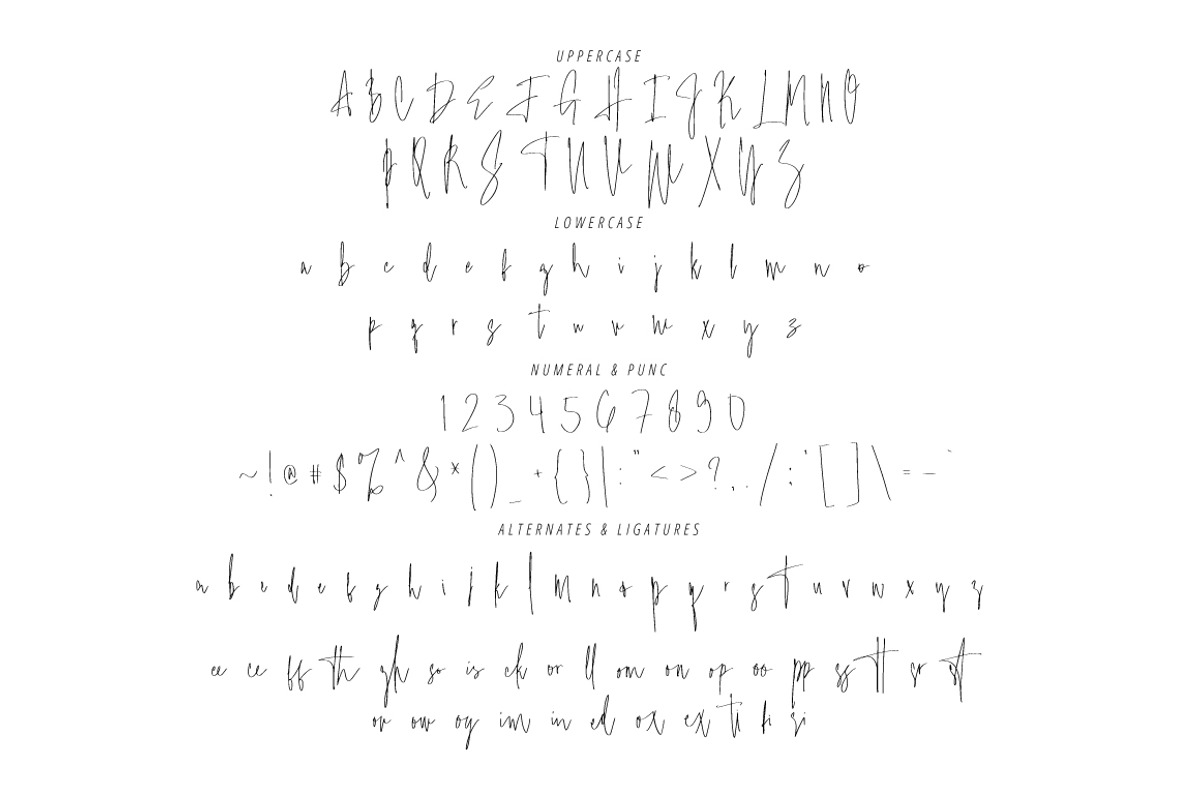 UPPERCASE
A B C D E F G H I J K L M N O
P Q R S T U V W X Y Z
LOWERCASE
a b c d e f g h i j k l m n o
p q r s t u v w x y z
NUMERAL & PUNC
1 2 3 4 5 6 7 8 9 0
~ ! @ # $ % ^ & * ( ) _ + { } | : " < > ? , . / ; ' [ ] \ = – `
ALTERNATES & LIGATURES
a b c d e f g h i j k l m n o p q r s t u v w x y z
ee ce ff th gh so is ck or ll om on op oo pp ss tt sr st
ov ow oy im in ed ox ex ti fi si